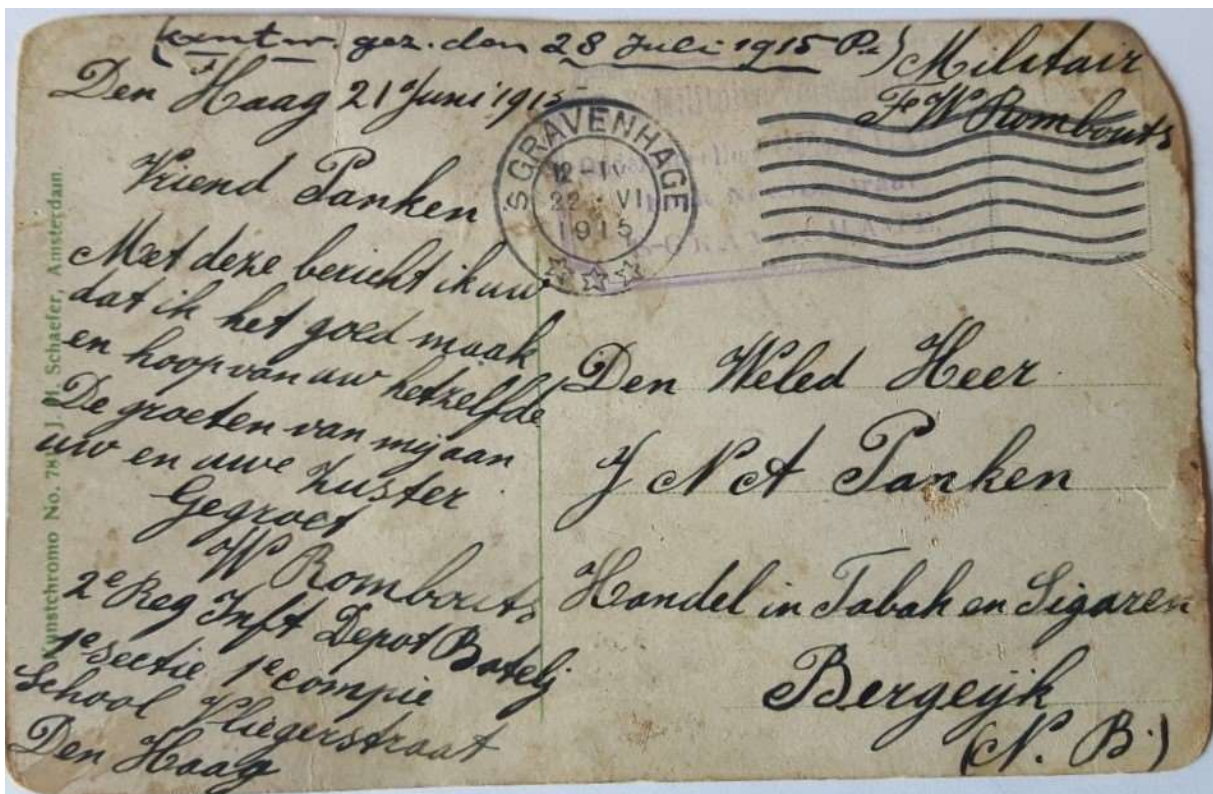 (Antw. gez. den 28 Juli 1915 Pn)
Militair
F W Rombouts
Den Haag 21 Juni 1915
'S GRAVENHAGE
22 · VI
1915
Vriend Panken
Met deze bericht ik uw
dat ik het goed maak
en hoop van uw hetzelfde
De groeten van mij aan
uw en uwe Zuster
Gegroet
W Rombouts
2e Reg Inft Depot Batelj
1e Sectie 1e compie
School Vliegerstraat
Den Haag
Den Weled Heer
J N A Panken
Handel in Tabak en Sigaren
Bergeijk
(N. B.)
Kunstchromo No. 781 J. M. Schaefer, Amsterdam.